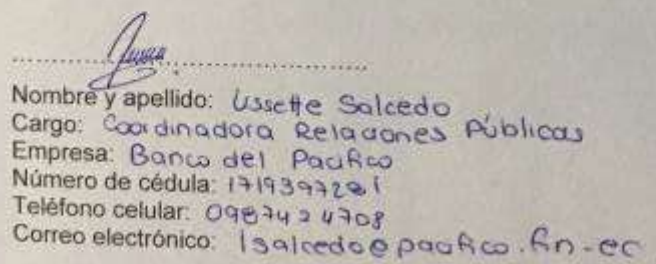 Nombre y apellido: Lissette Salcedo
Cargo: Coordinadora Relaciones Públicas
Empresa: Banco del Pacífico
Número de cédula: 1719397281
Teléfono celular: 0987424708
Correo electrónico: lsalcedo@pacifico.fin.ec